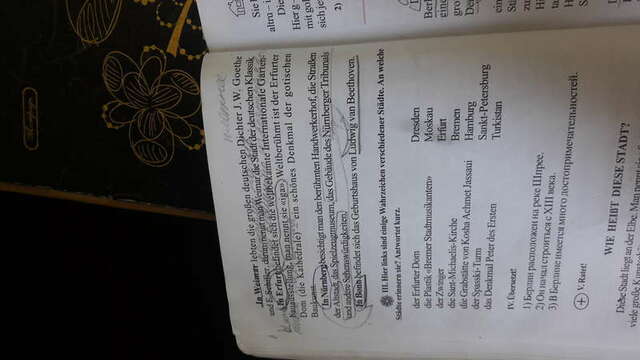 In Weimar lebten die großen deutschen Dichter J.W. Goethe
und F. Schiller, darum nennt man Weimar die Stadt der deutschen Klassik.
In Erfurt befindet sich die weltbekannte Internationale Garten-
bauausstellung, man nennt sie «iga». Weltberühmt ist der Erfurter
Dom (die Kathedrale) – ein schönes Denkmal der gotischen
Baukunst.
In Nürnberg besichtigt man den berühmten Handwerkerhof, die Straßen
der Altstadt, das Spielzeugmuseum, das Gebäude des Nürnberger Tribunals
und andere Sehenswürdigkeiten.
In Bonn befindet sich das Geburtshaus von Ludwig van Beethoven.
III. Hier links sind einige Wahrzeichen verschiedener Städte. An welche
Städte erinnern sie? Antwortet kurz.
der Erfurter Dom
die Plastik «Bremer Stadtmusikanten»
der Zwinger
die Sankt-Michaelis-Kirche
die Grabstätte von Kosha Achmet Jassaui
der Spasski-Turm
das Denkmal Peter des Ersten
Dresden
Moskau
Erfurt
Bremen
Hamburg
Sankt-Petersburg
Turkistan
IV. Übersetzt!
1) Берлин расположен на реке Шпрее.
2) Он начал строиться с XIII века.
3) В Берлине имеется много достопримечательностей.
V. Ratet!
WIE HEIßT DIESE STADT?
Diese Stadt liegt an der Elbe. Man nennt